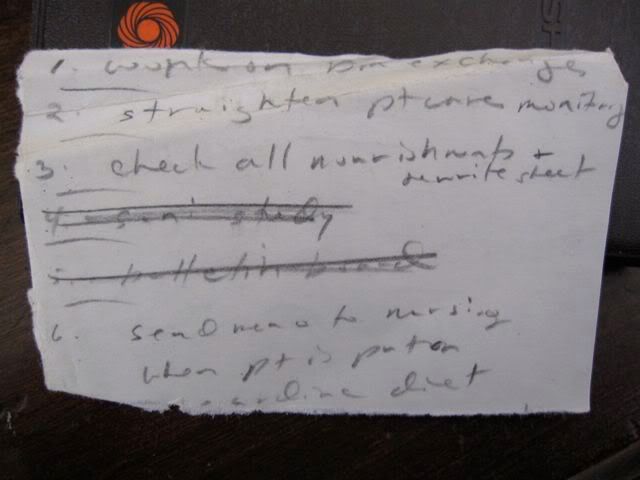 1. work on exchanges
2. straighten pt cares monitoring
3. check all nourishments +
rewrite sheet
4. sani study
5. bulletin board
6. send memo to nursing
when pt is put on
cardiac diet